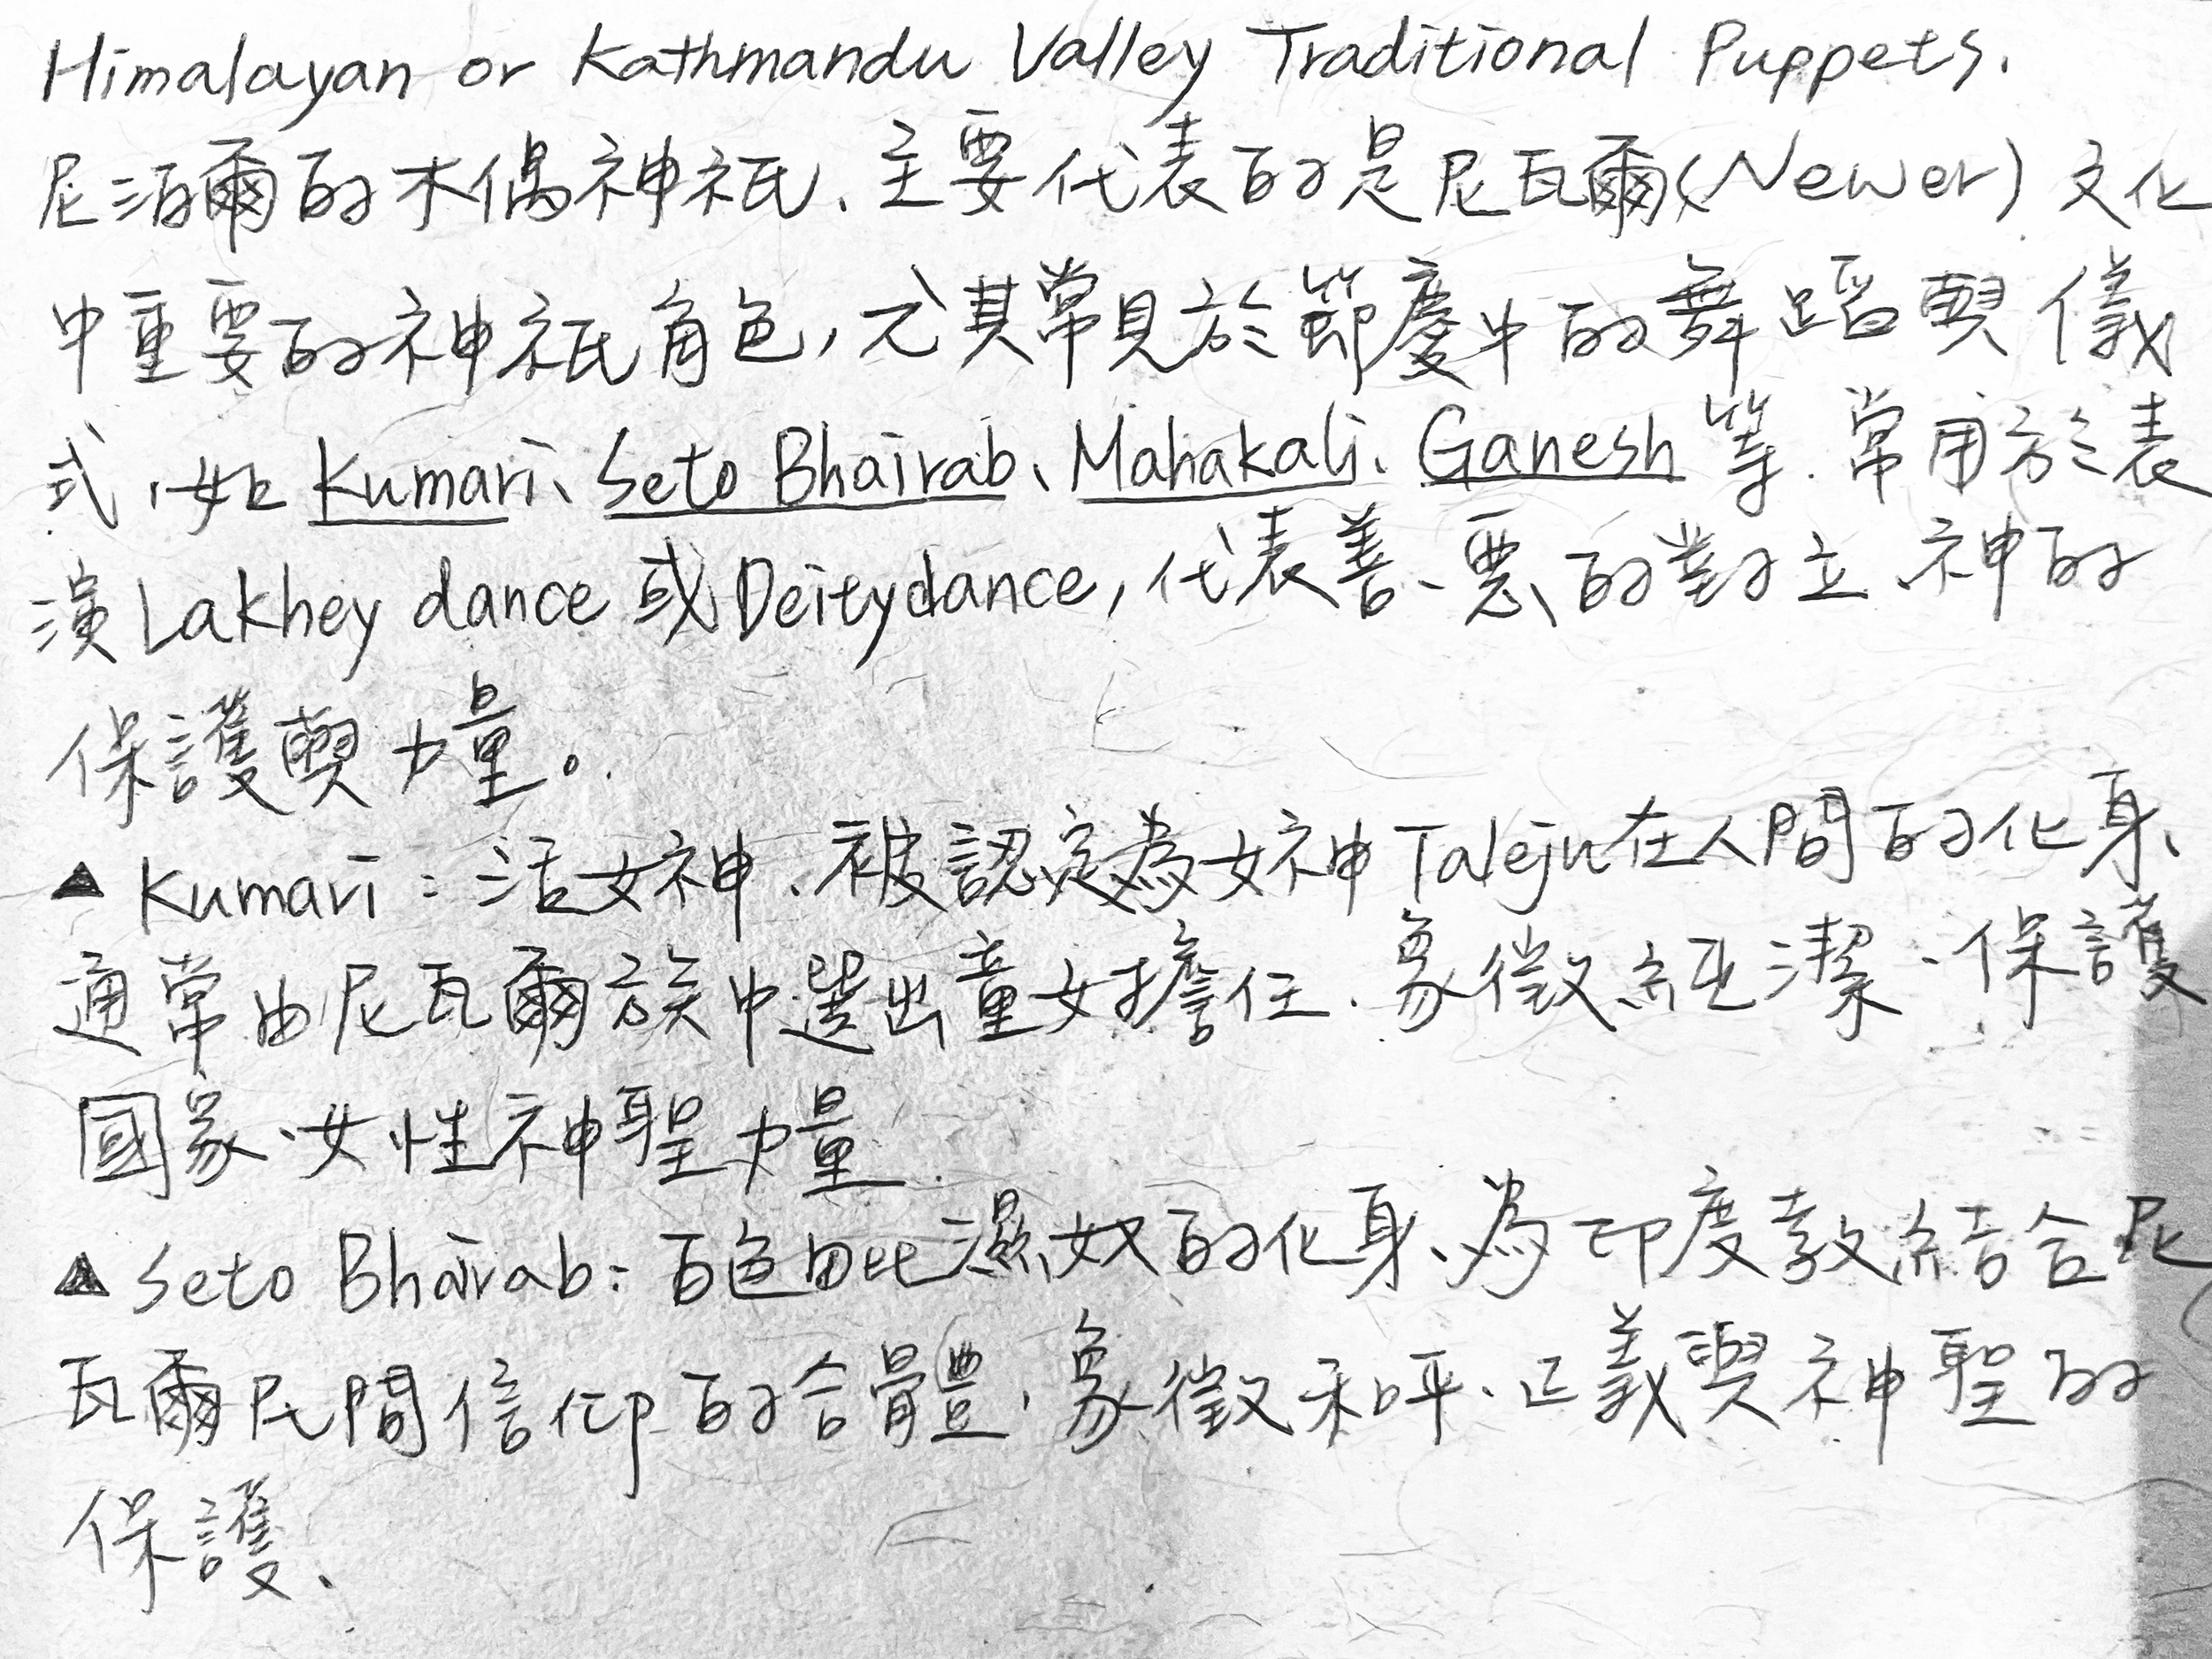 Himalayan or Kathmandu Valley Traditional Puppets.
尼泊爾的木偶神祇、主要代表的是尼瓦爾(Newer)文化
中重要的神祇角色,尤其常見於節慶中的舞蹈與儀
式,如 Kumari、Seto Bhairab、Mahakali、Ganesh 等、常用於表
演Lakhey dance 或 Deity dance,代表善、惡的對立、神的
保護與力量。
▲ Kumari:活女神、被認定為女神Taleju在人間的化身、
通常由尼瓦爾族中選出童女擔任、象徵純潔、保護
國家、女性神聖力量.
▲ Seto Bhairab:白色毗濕奴的化身、為印度教結合尼
瓦爾民間信仰的合體、象徵和平、正義與神聖的
保護、